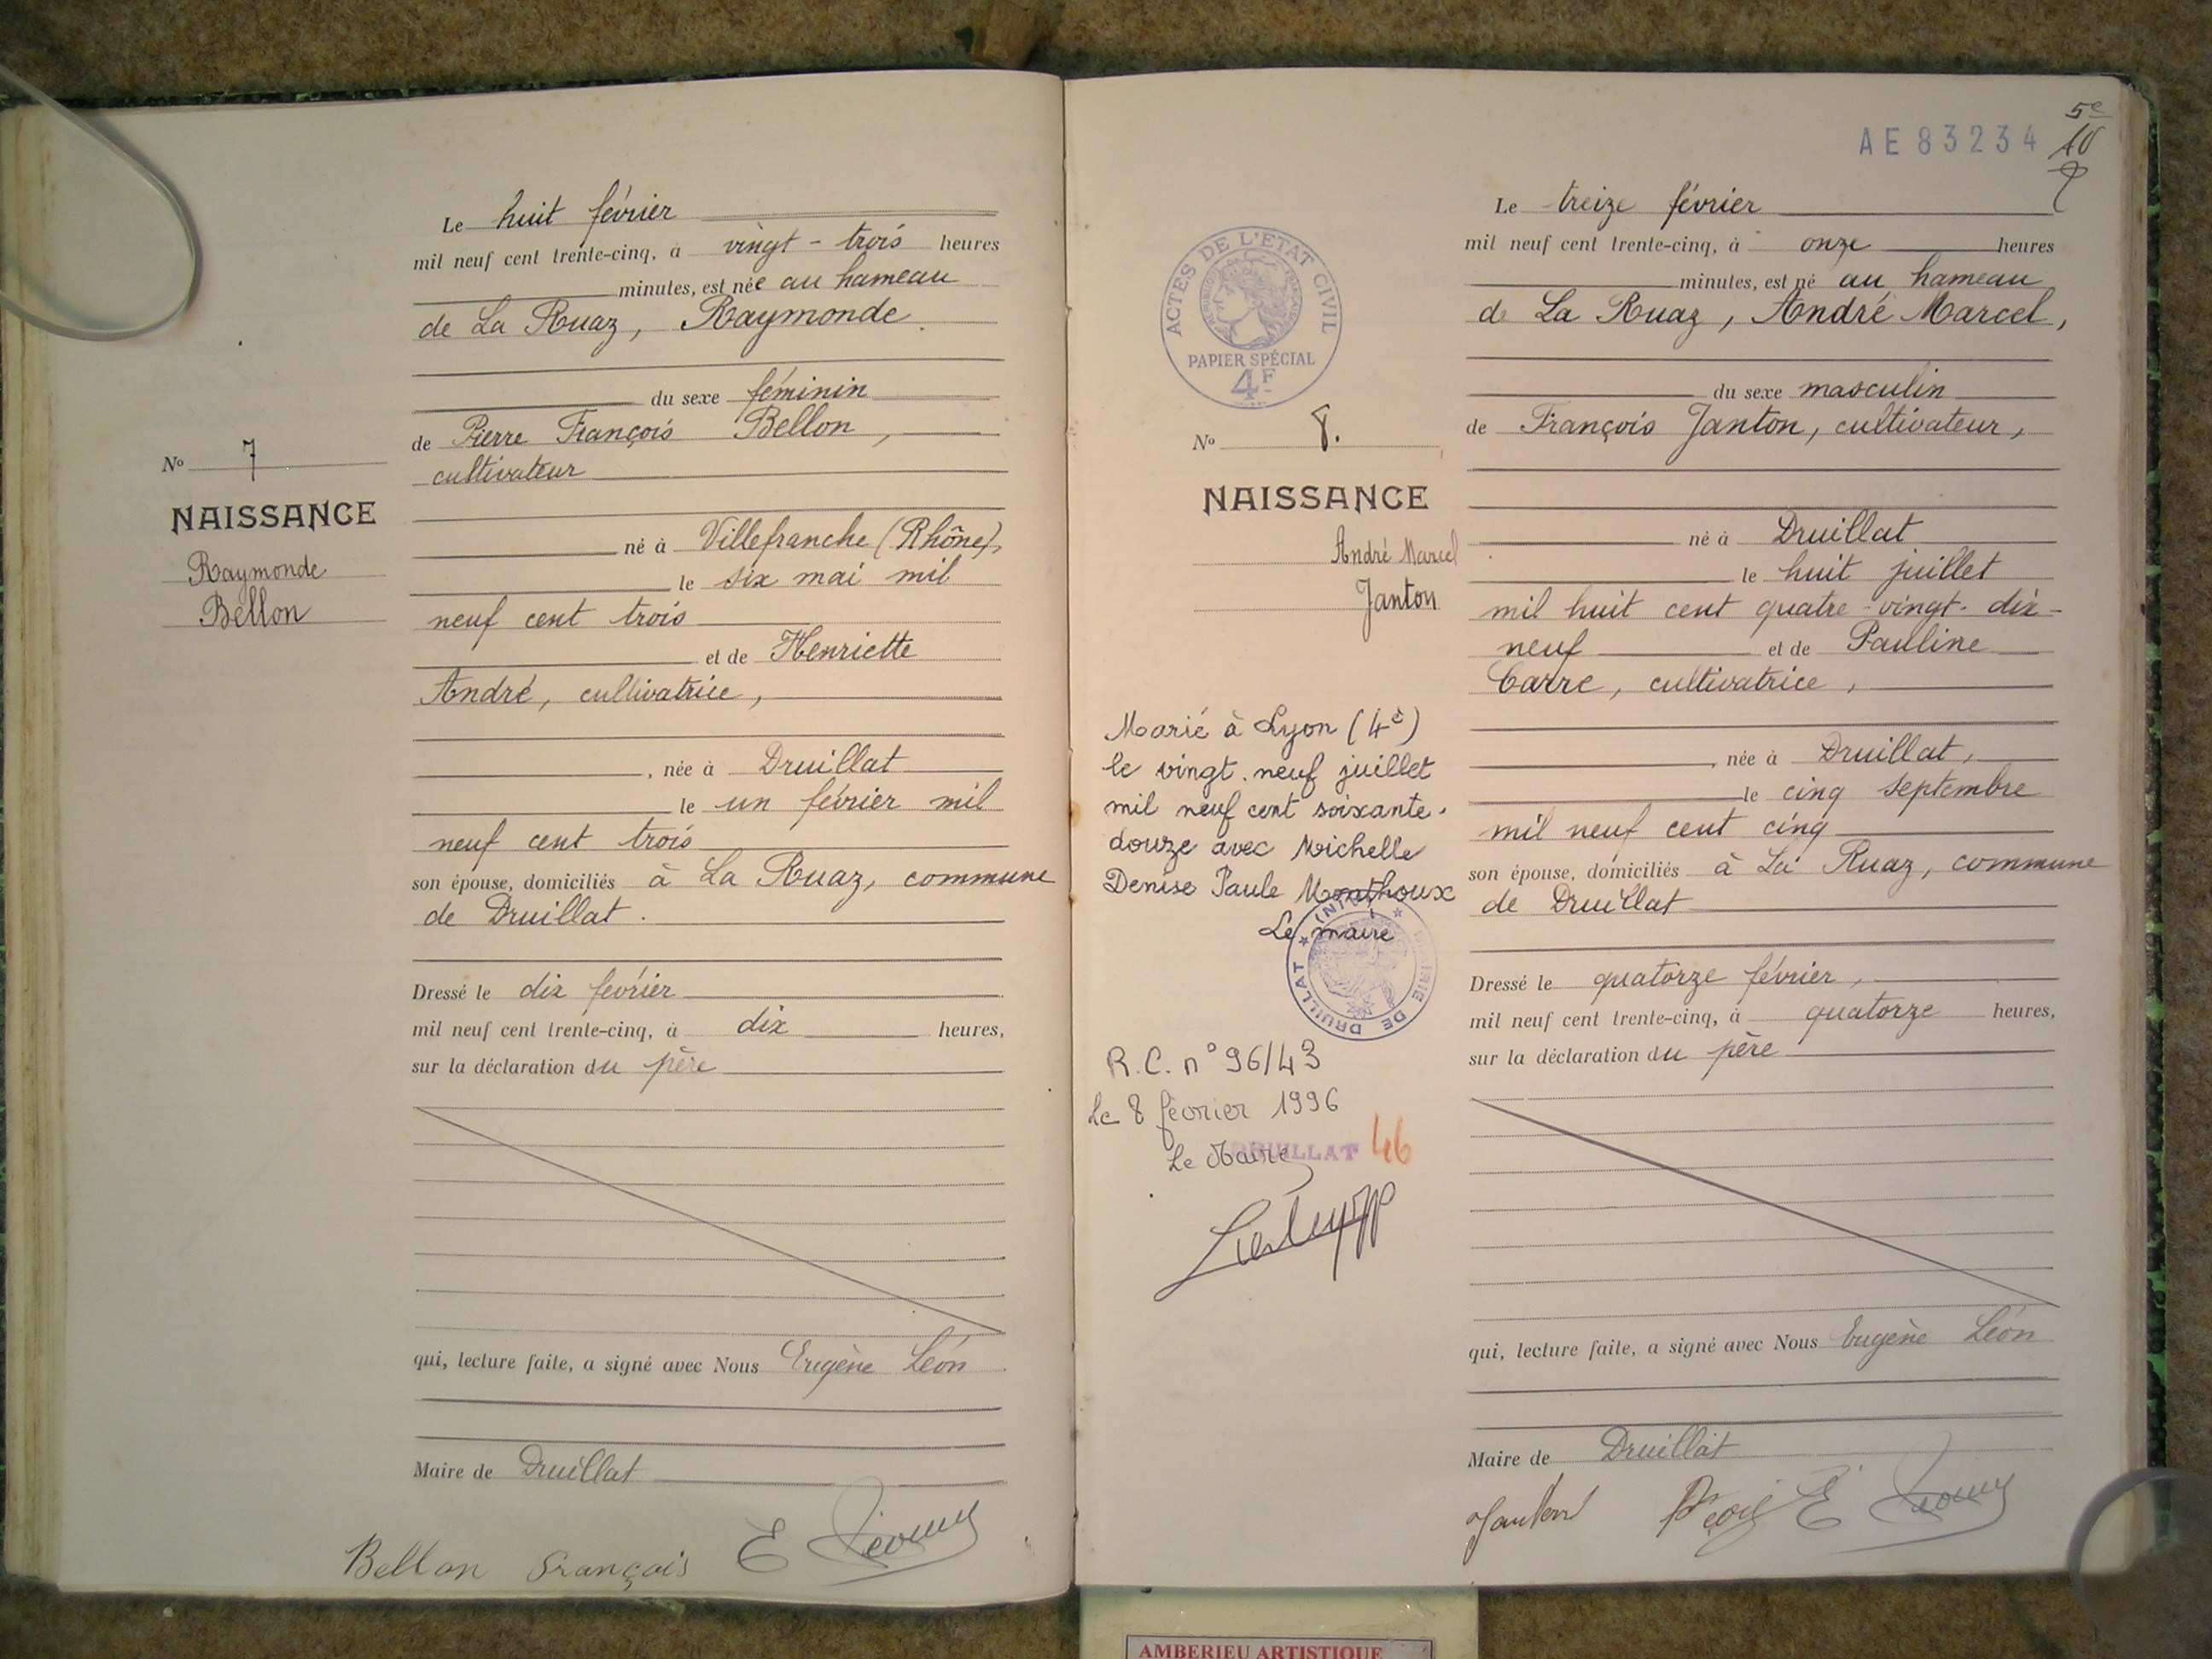 Le huit février
mil neuf cent trente-cinq, à vingt-trois heures
minutes, est née au hameau
de La Ruaz, Raymonde
du sexe féminin
de Pierre François Bellon,
cultivateur
No 7
NAISSANCE
Raymonde
Bellon
né à Villefranche (Rhône),
le six mai mil
neuf cent trois
et de Henriette
André, cultivatrice,
, née à Druillat
le un février mil
neuf cent trois
son épouse, domiciliés à La Ruaz, commune
de Druillat.
Dressé le dix février
mil neuf cent trente-cinq, à dix heures,
sur la déclaration du père
qui, lecture faite, a signé avec Nous Eugène Léon
Maire de Druillat
Bellon François E Léon
AE83234
5e
10
ACTES DE L'ETAT CIVIL
PAPIER SPÉCIAL
4F
No 8.
NAISSANCE
André Marcel
Janton
Marié à Lyon (4è)
le vingt-neuf juillet
mil neuf cent soixante-
douze avec Michelle
Denise Paule Monthoux
Le maire
MAIRIE DE DRUILLAT
R.C. n° 96/43
Le 8 février 1996
Le Maire
DRUILLAT 46
Le treize février
mil neuf cent trente-cinq, à onze heures
minutes, est né au hameau
de La Ruaz, André Marcel,
du sexe masculin
de François Janton, cultivateur,
né à Druillat
le huit juillet
mil huit cent quatre-vingt-dix-
neuf et de Pauline
Carre, cultivatrice,
, née à Druillat,
le cinq septembre
mil neuf cent cinq
son épouse, domiciliés à La Ruaz, commune
de Druillat
Dressé le quatorze février,
mil neuf cent trente-cinq, à quatorze heures,
sur la déclaration du père
qui, lecture faite, a signé avec Nous Eugène Léon
Maire de Druillat
Janton E Léon
AMBERIEU ARTISTIQUE